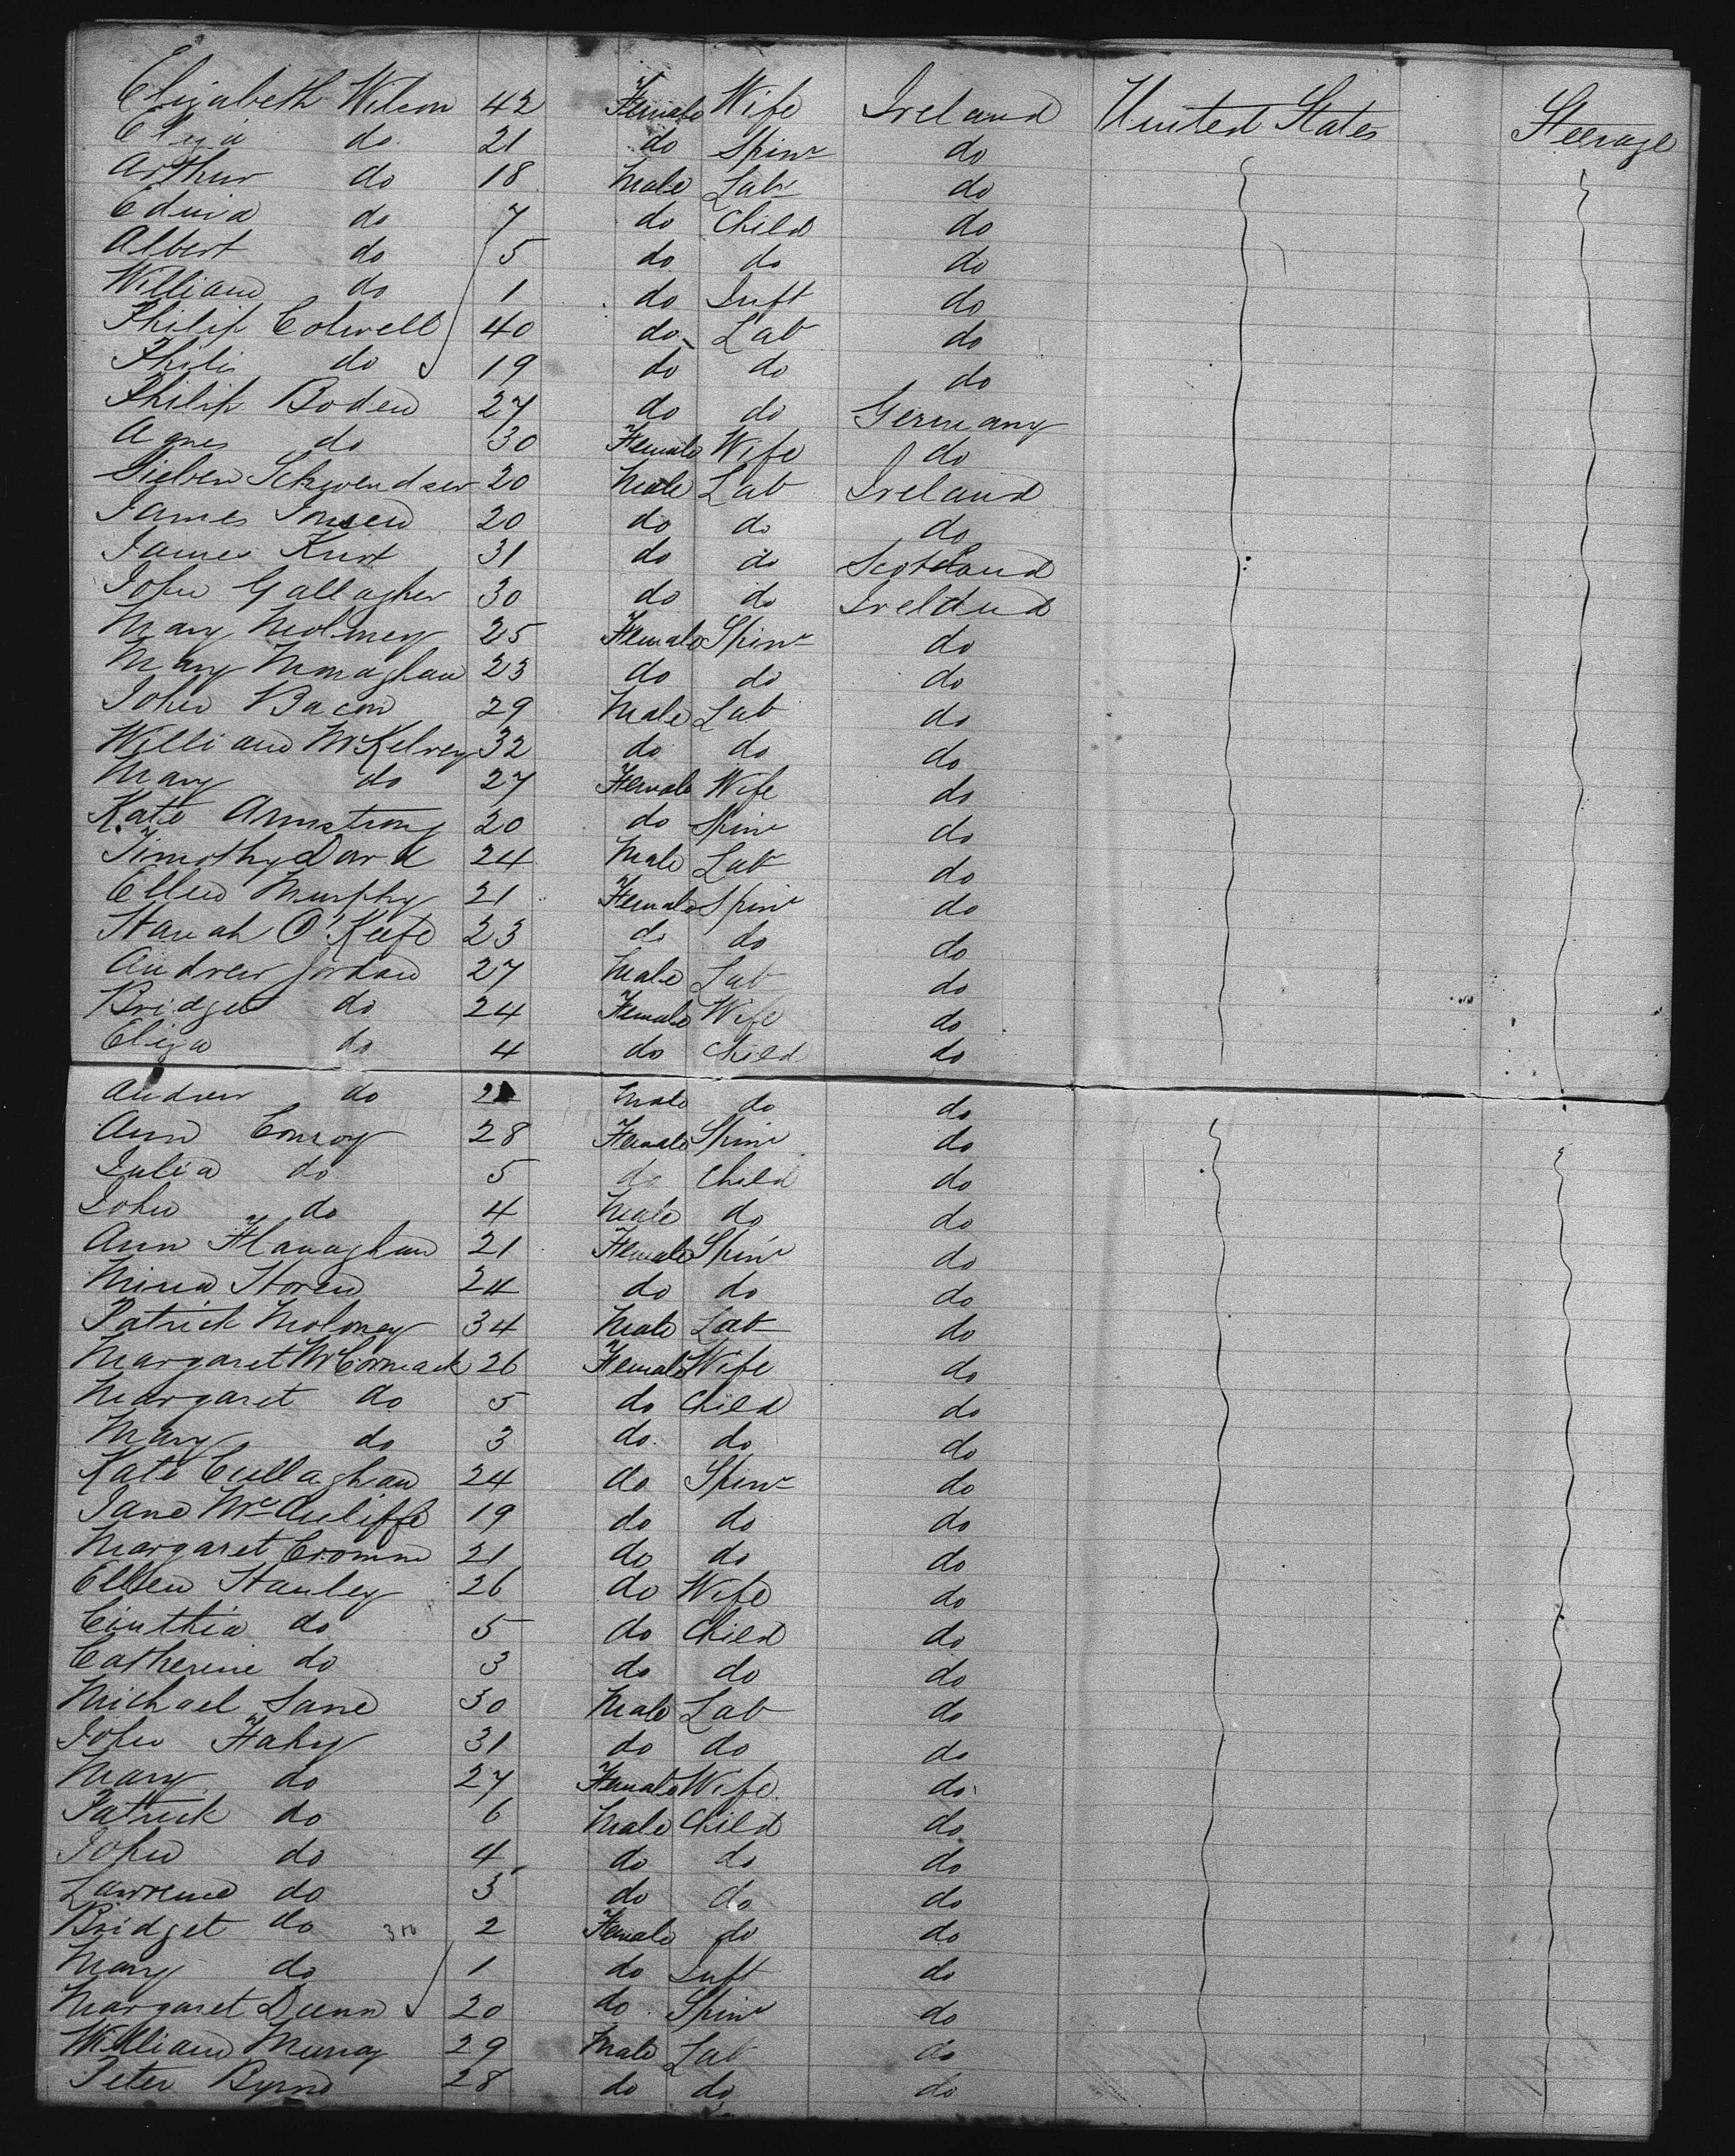 Elizabeth Wilson 42 Female Wife Ireland United States Steerage
Eliza do 21 do Spinr do
Arthur do 18 Male Labr do
Edwin do 7 do Child do
Albert do 5 do do do
William do 1 do Inft do
Philip Colwell 40 do Lab do
Philip do 19 do do do
Philip Boden 27 do do Germany
Agnes do 30 Female Wife do
Schwendser 20 Male Lab Ireland
James 20 do do do
James 31 do do Scotland
John Gallagher 30 do do Ireland
Mary Molmey 25 Female Spinr do
Mary Monaghan 23 do do do
John Bacon 29 Male Lab do
William McKelvey 32 do do do
Mary do 27 Female Wife do
Kate Armstrong 20 do Spinr do
Timothy 24 Male Lab do
Ellen Murphy 21 Female Spinr do
Hanah O'Keefe 23 do do do
Andrew Jordan 27 Male Lab do
Bridget do 24 Female Wife do
Eliza do 4 do Child do
Andrew do 2 Male do do
Ann Conroy 28 Female Spinr do
Julia do 5 do Child do
John do 4 Male do do
Ann Flanaghan 21 Female Spinr do
Horen 24 do do do
Patrick Moloney 34 Male Lab do
Margaret McCormack 26 Female Wife do
Margaret do 5 do Child do
Mary do 3 do do do
Kate Cullaghan 24 do Spinr do
Jane McAuliffe 19 do do do
Margaret Cronin 21 do do do
Ellen Hanley 26 do Wife do
Cinthia do 5 do Child do
Catherine do 3 do do do
Michael Lane 30 Male Lab do
John Fahy 31 do do do
Mary do 27 Female Wife do
Patrick do 6 Male Child do
John do 4 do do do
Lawrence do 3 do do do
Bridget do 310 2 Female do do
Mary do 1 do Inft do
Margaret Dunn 20 do Spinr do
William Murray 29 Male Lab do
Peter Byrne 28 do do do